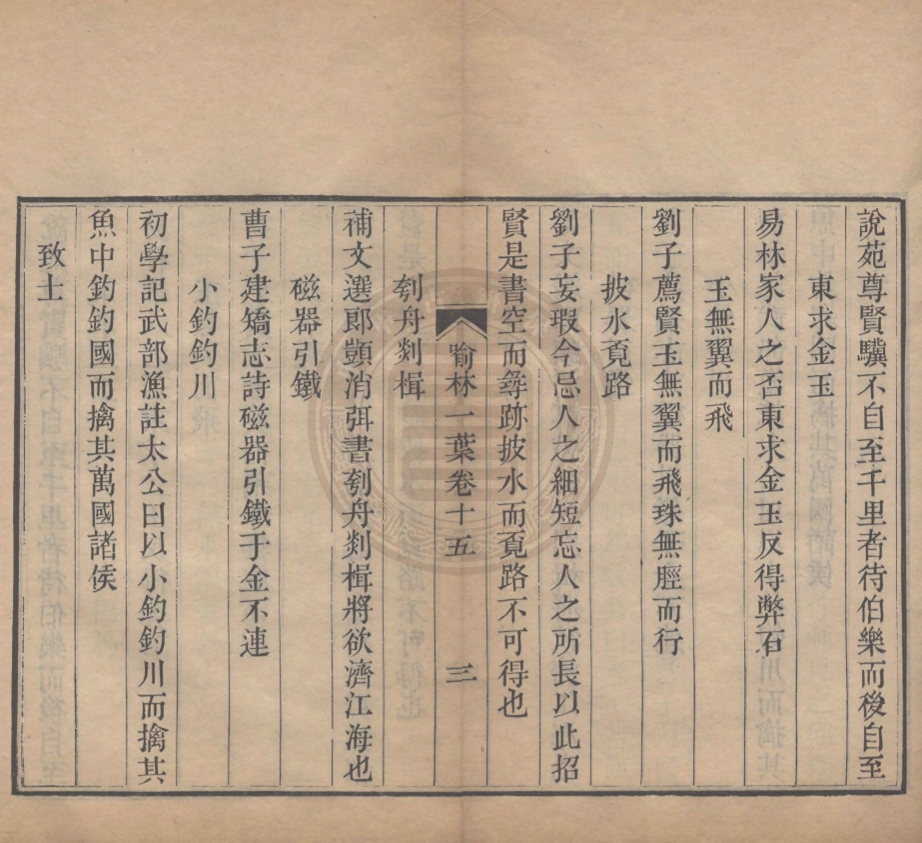 說苑尊賢驥不自至千里者待伯樂而後自至
東求金玉
易林家人之否東求金玉反得弊石
玉無翼而飛
劉子薦賢玉無翼而飛珠無脛而行
披水覓路
劉子妄瑕今忌人之細短忘人之所長以此招
賢是書空而尋跡披水而覓路不可得也
喻林一葉卷十五
三
刳舟剡楫
補文選郎顗消弭書刳舟剡楫將欲濟江海也
磁器引鐵
曹子建矯志詩磁器引鐵于金不連
小釣釣川
初學記武部漁註太公曰以小釣釣川而擒其
魚中釣釣國而擒其萬國諸侯
致士